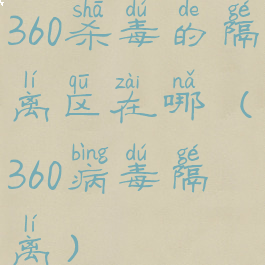 shā dú de gé
360杀毒的隔
lí qū zài nǎ
离区在哪（
bìng dú gé
360病毒隔
lí
离）